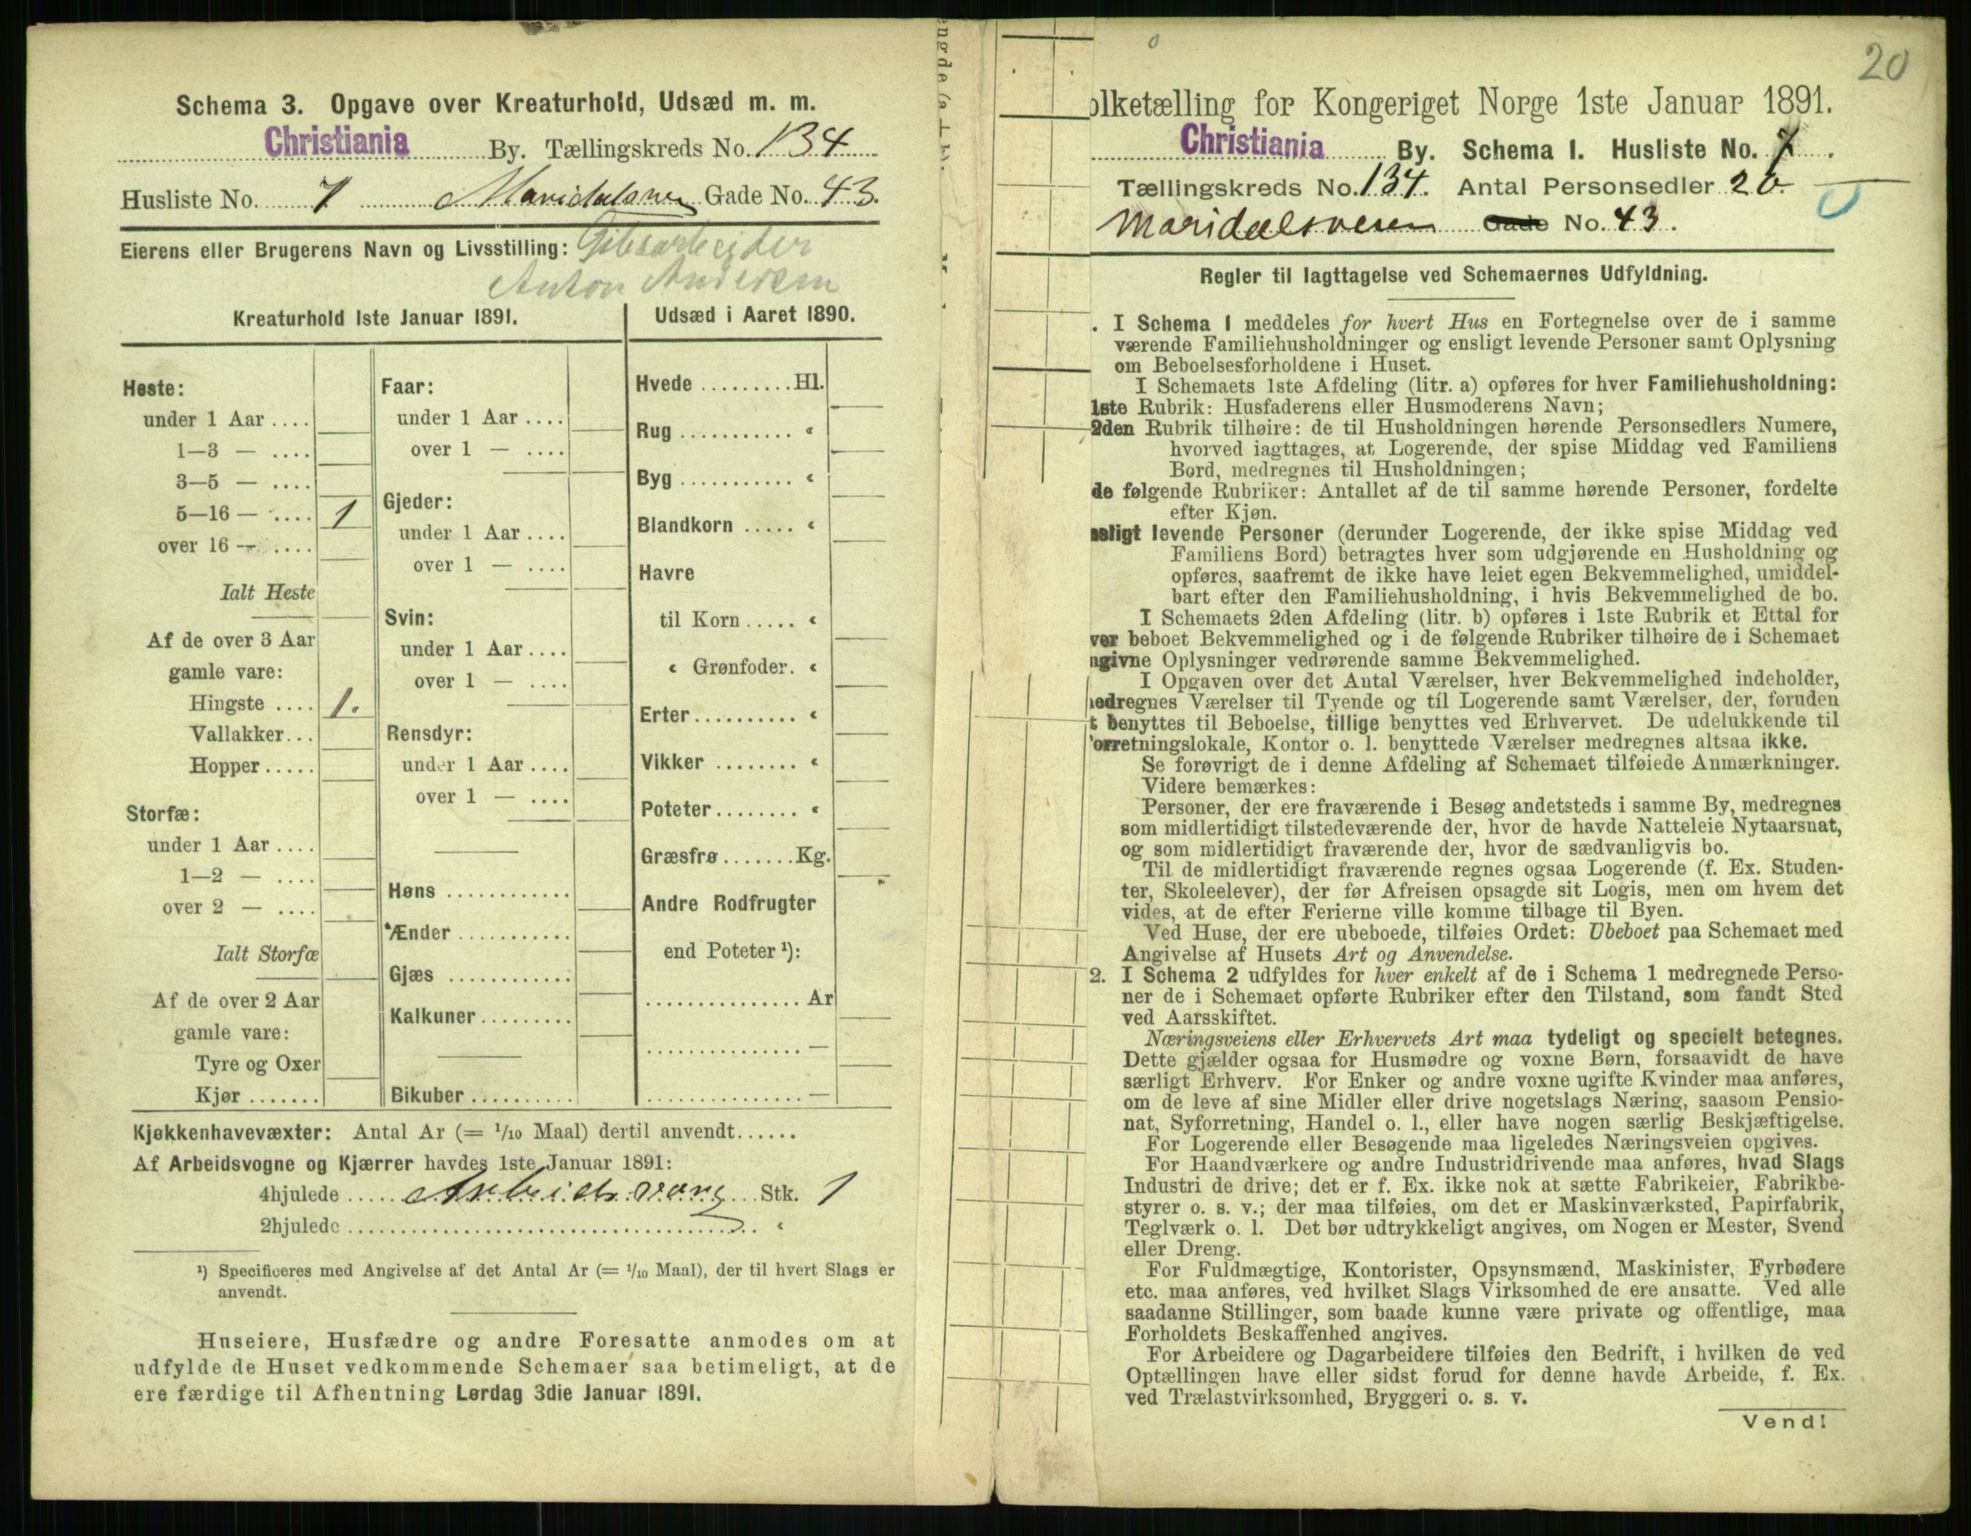 Schema 3. Opgave over Kreaturhold, Udsæd m. m.
Christiania By. Tællingskreds No. 134
Husliste No. 7 Maridalsvei Gade No. 43.
Eierens eller Brugerens Navn og Livsstilling: Gibsarbeider
Anton Andersen
Kreaturhold 1ste Januar 1891.
Heste:
under 1 Aar ....
1—3 — ....
3—5 — ....
5—16 — .... 1
over 16 — ....
Ialt Heste
Af de over 3 Aar
gamle vare:
Hingste .... 1.
Vallakker...
Hopper.....
Storfæ:
under 1 Aar ....
1—2 — ....
over 2 — ....
Ialt Storfæ
Af de over 2 Aar
gamle vare:
Tyre og Oxer
Kjør .......
Faar:
under 1 Aar ....
over 1 — ....
Gjeder:
under 1 Aar ....
over 1 — ....
Svin:
under 1 Aar ....
over 1 — ....
Rensdyr:
under 1 Aar ....
over 1 — ....
Høns ............
Ænder ...........
Gjæs ............
Kalkuner.........
Bikuber ..........
Udsæd i Aaret 1890.
Hvede .........Hl.
Rug ........... «
Byg ........... «
Blandkorn ..... «
Havre
til Korn ..... «
« Grønfoder. «
Erter.......... «
Vikker ........ «
Poteter........ «
Græsfrø .......Kg.
Andre Rodfrugter
end Poteter ¹):
............... Ar
............... —
............... —
Kjøkkenhavevæxter: Antal Ar (= 1/10 Maal) dertil anvendt......
Af Arbeidsvogne og Kjærrer havdes 1ste Januar 1891:
4hjulede ..... Arbeidsvong Stk. 1
2hjulede .............................. «
¹) Specificeres med Angivelse af det Antal Ar (= 1/10 Maal), der til hvert Slags er
anvendt.
Huseiere, Husfædre og andre Foresatte anmodes om at
udfylde de Huset vedkommende Schemaer saa betimeligt, at de
ere færdige til Afhentning Lørdag 3die Januar 1891.
20
olketælling for Kongeriget Norge 1ste Januar 1891.
Christiania By. Schema I. Husliste No. 7.
Tællingskreds No. 134. Antal Personsedler 20
Maridalsveien Gade No. 43.
Regler til Iagttagelse ved Schemaernes Udfyldning.
. I Schema 1 meddeles for hvert Hus en Fortegnelse over de i samme
værende Familiehusholdninger og ensligt levende Personer samt Oplysning
om Beboelsesforholdene i Huset.
I Schemaets 1ste Afdeling (litr. a) opføres for hver Familiehusholdning:
1ste Rubrik: Husfaderens eller Husmoderens Navn;
2den Rubrik tilhøire: de til Husholdningen hørende Personsedlers Numere,
hvorved iagttages, at Logerende, der spise Middag ved Familiens
Bord, medregnes til Husholdningen;
de følgende Rubriker: Antallet af de til samme hørende Personer, fordelte
efter Kjøn.
nsligt levende Personer (derunder Logerende, der ikke spise Middag ved
Familiens Bord) betragtes hver som udgjørende en Husholdning og
opføres, saafremt de ikke have leiet egen Bekvemmelighed, umiddel-
bart efter den Familiehusholdning, i hvis Bekvemmelighed de bo.
I Schemaets 2den Afdeling (litr. b) opføres i 1ste Rubrik et Ettal for
ver beboet Bekvemmelighed og i de følgende Rubriker tilhøire de i Schemaet
ngivne Oplysninger vedrørende samme Bekvemmelighed.
I Opgaven over det Antal Værelser, hver Bekvemmelighed indeholder,
medregnes Værelser til Tyende og til Logerende samt Værelser, der, foruden
t benyttes til Beboelse, tillige benyttes ved Erhvervet. De udelukkende til
orretningslokale, Kontor o. l. benyttede Værelser medregnes altsaa ikke.
Se forøvrigt de i denne Afdeling af Schemaet tilføiede Anmærkninger.
Videre bemærkes:
Personer, der ere fraværende i Besøg andetsteds i samme By, medregnes
som midlertidigt tilstedeværende der, hvor de havde Natteleie Nytaarsnat,
og som midlertidigt fraværende der, hvor de sædvanligvis bo.
Til de midlertidigt fraværende regnes ogsaa Logerende (f. Ex. Studen-
ter, Skoleelever), der før Afreisen opsagde sit Logis, men om hvem det
vides, at de efter Ferierne ville komme tilbage til Byen.
Ved Huse, der ere ubeboede, tilføies Ordet: Ubeboet paa Schemaet med
Angivelse af Husets Art og Anvendelse.
2. I Schema 2 udfyldes for hver enkelt af de i Schema 1 medregnede Perso-
ner de i Schemaet opførte Rubriker efter den Tilstand, som fandt Sted
ved Aarsskiftet.
Næringsveiens eller Erhvervets Art maa tydeligt og specielt betegnes.
Dette gjælder ogsaa for Husmødre og voxne Børn, forsaavidt de have
særligt Erhverv. For Enker og andre voxne ugifte Kvinder maa anføres,
om de leve af sine Midler eller drive nogetslags Næring, saasom Pensio-
nat, Syforretning, Handel o. l., eller have nogen særlig Beskjæftigelse.
For Logerende eller Besøgende maa ligeledes Næringsveien opgives.
For Haandværkere og andre Industridrivende maa anføres, hvad Slags
Industri de drive; det er f. Ex. ikke nok at sætte Fabrikeier, Fabrikbe-
styrer o. s. v.; der maa tilføies, om det er Maskinværksted, Papirfabrik,
Teglværk o. l. Det bør udtrykkeligt angives, om Nogen er Mester, Svend
eller Dreng.
For Fuldmægtige, Kontorister, Opsynsmænd, Maskinister, Fyrbødere
etc. maa anføres, ved hvilket Slags Virksomhed de ere ansatte. Ved alle
saadanne Stillinger, som baade kunne være private og offentlige, maa
Forholdets Beskaffenhed angives.
For Arbeidere og Dagarbeidere tilføies den Bedrift, i hvilken de ved
Optællingen have eller sidst forud for denne havde Arbeide, f. Ex.
ved Trælastvirksomhed, Bryggeri o. s. v.
Vend!